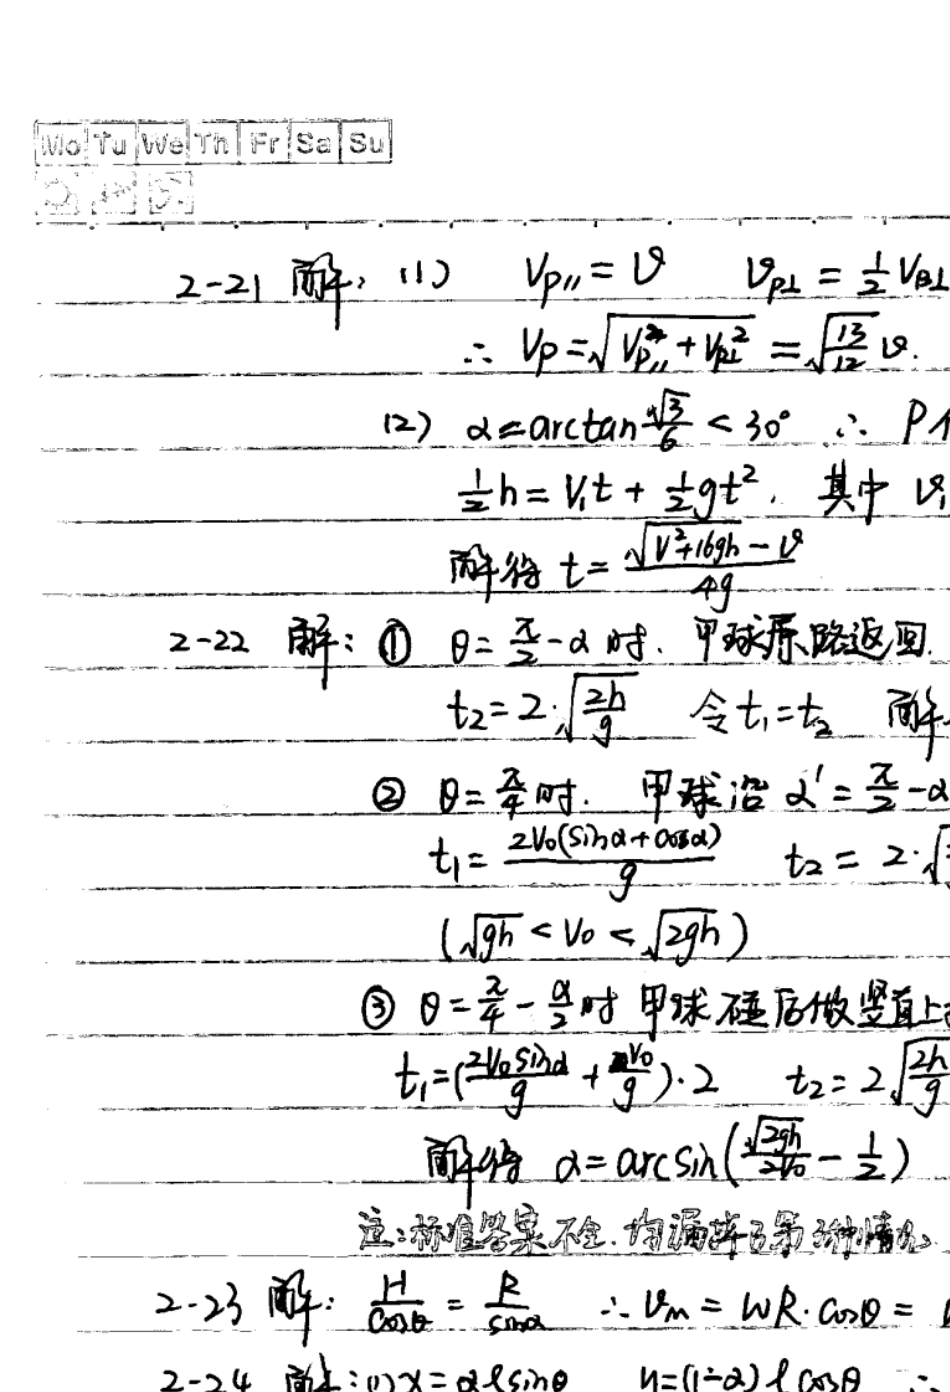 Mo Tu We Th Fr Sa Su
2-21 解: (1) V_{P//} = v v_{P⊥} = \frac{1}{2} V_{B⊥}
∴ V_P = \sqrt{V_{P//}^2 + V_{P⊥}^2} = \sqrt{\frac{13}{12}} v.
(2) α = arctan \frac{\sqrt{3}}{6} < 30° ∴ P
\frac{1}{2}h = V_1t + \frac{1}{2}gt^2. 其中 v_1
解得 t = \frac{\sqrt{V^2+16gh} - v}{4g}
2-22 解: ① θ = \frac{π}{2} - α 时. 甲球原路返回.
t_2 = 2·\sqrt{\frac{2h}{g}} 令 t_1 = t_2 解
② θ = \frac{π}{4} 时. 甲球沿 α' = \frac{π}{2} - α
t_1 = \frac{2V_0(sinα + cosα)}{g} t_2 = 2·
(\sqrt{gh} < V_0 < \sqrt{2gh})
③ θ = \frac{π}{4} - \frac{α}{2} 时 甲球碰后做竖直上
t_1 = (\frac{2V_0 sinα}{g} + \frac{V_0}{g})·2 t_2 = 2\sqrt{\frac{2h}{g}}
解得 α = arcsin(\frac{\sqrt{2gh}}{2V_0} - \frac{1}{2})
注:标准答案不全.均漏掉了第3种情况
2-23 解: \frac{H}{cosθ} = \frac{R}{sinα} ∴ v_m = ωR·cosθ =
2-24 解:(1) x = αlsinθ y = (1-α)lcosθ ∴